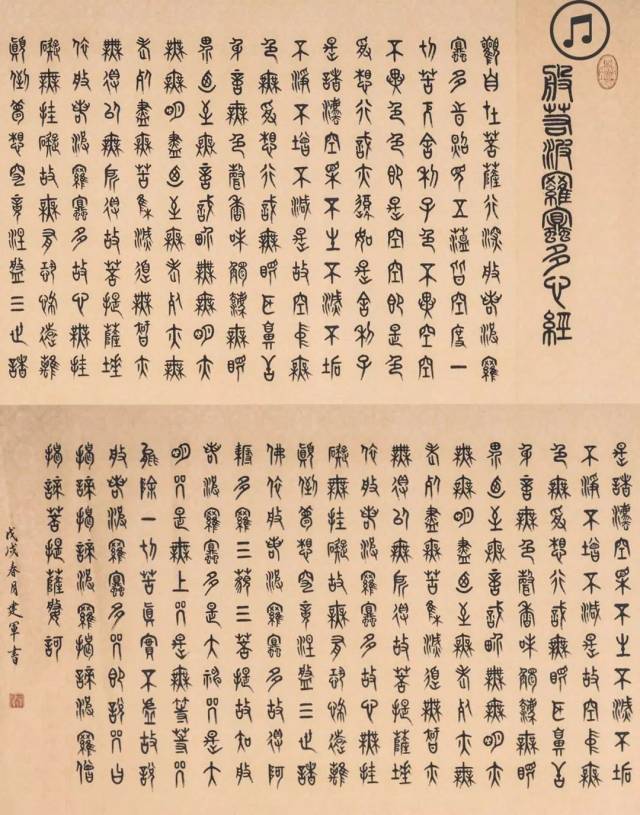 般若波羅蜜多心經
觀自在菩薩行深般若波羅
蜜多時照見五蘊皆空度一
切苦厄舍利子色不異空空
不異色色即是空空即是色
受想行識亦復如是舍利子
是諸法空相不生不滅不垢
不淨不增不減是故空中無
色無受想行識無眼耳鼻舌
身意無色聲香味觸法無眼
界乃至無意識界無無明亦
無無明盡乃至無老死亦無
老死盡無苦集滅道無智亦
無得以無所得故菩提薩埵
依般若波羅蜜多故心無挂
礙無挂礙故無有恐怖遠離
顛倒夢想究竟涅槃三世諸
是諸法空相不生不滅不垢
不淨不增不減是故空中無
色無受想行識無眼耳鼻舌
身意無色聲香味觸法無眼
界乃至無意識界無無明亦
無無明盡乃至無老死亦無
老死盡無苦集滅道無智亦
無得以無所得故菩提薩埵
依般若波羅蜜多故心無挂
礙無挂礙故無有恐怖遠離
顛倒夢想究竟涅槃三世諸
佛依般若波羅蜜多故得阿
耨多羅三藐三菩提故知般
若波羅蜜多是大神咒是大
明咒是無上咒是無等等咒
能除一切苦真實不虛故說
般若波羅蜜多咒即說咒曰
揭諦揭諦波羅揭諦波羅僧
揭諦菩提薩婆訶
戊戌春月建軍書